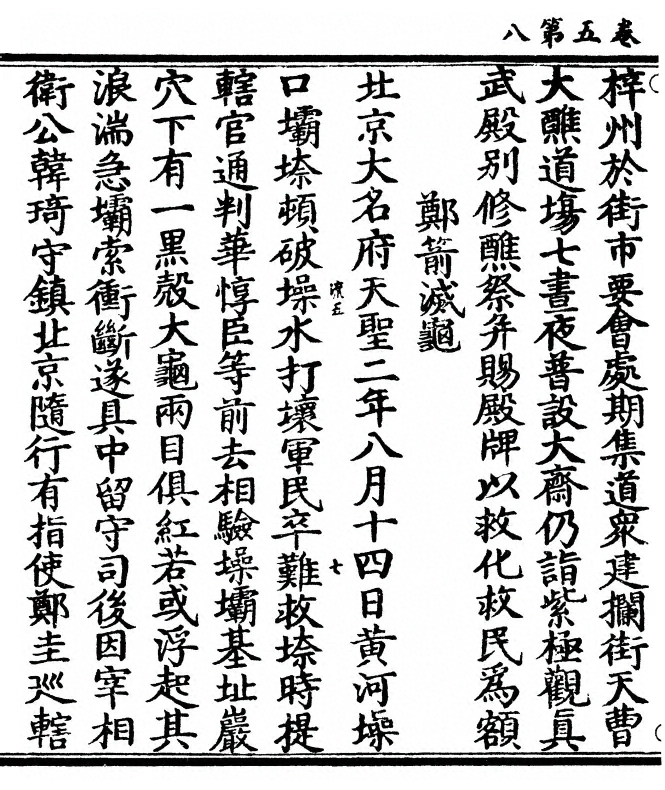 卷五第八
梓州於街市要會處期集道衆建攔街天曹
大醮道場七晝夜普設大齋仍詣紫極觀真
武殿别修醮祭并賜殿牌以救化救民爲額
鄭箭滅龜
北京大名府天聖二年八月十四日黄河埽
口壩垛頓破埽水打壞軍民卒難救垛時提
轄官通判華惇臣等前去相驗埽壩基址巖
穴下有一黑殼大龜兩目俱紅若或浮起其
浪湍急壩索衝斷遂具中留守司後因宰相
衛公韓琦守鎮北京隨行有指使鄭圭巡轄